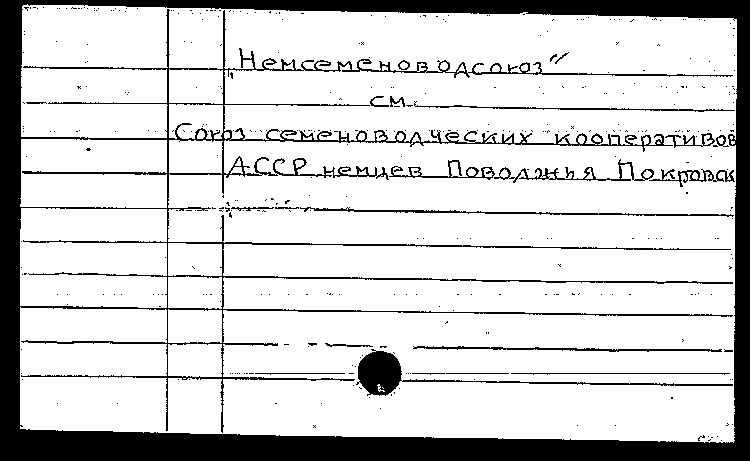 „Немсеменоводсоюз"
см.
Союз семеноводческих кооперативов
АССР немцев Поволжья Покровск